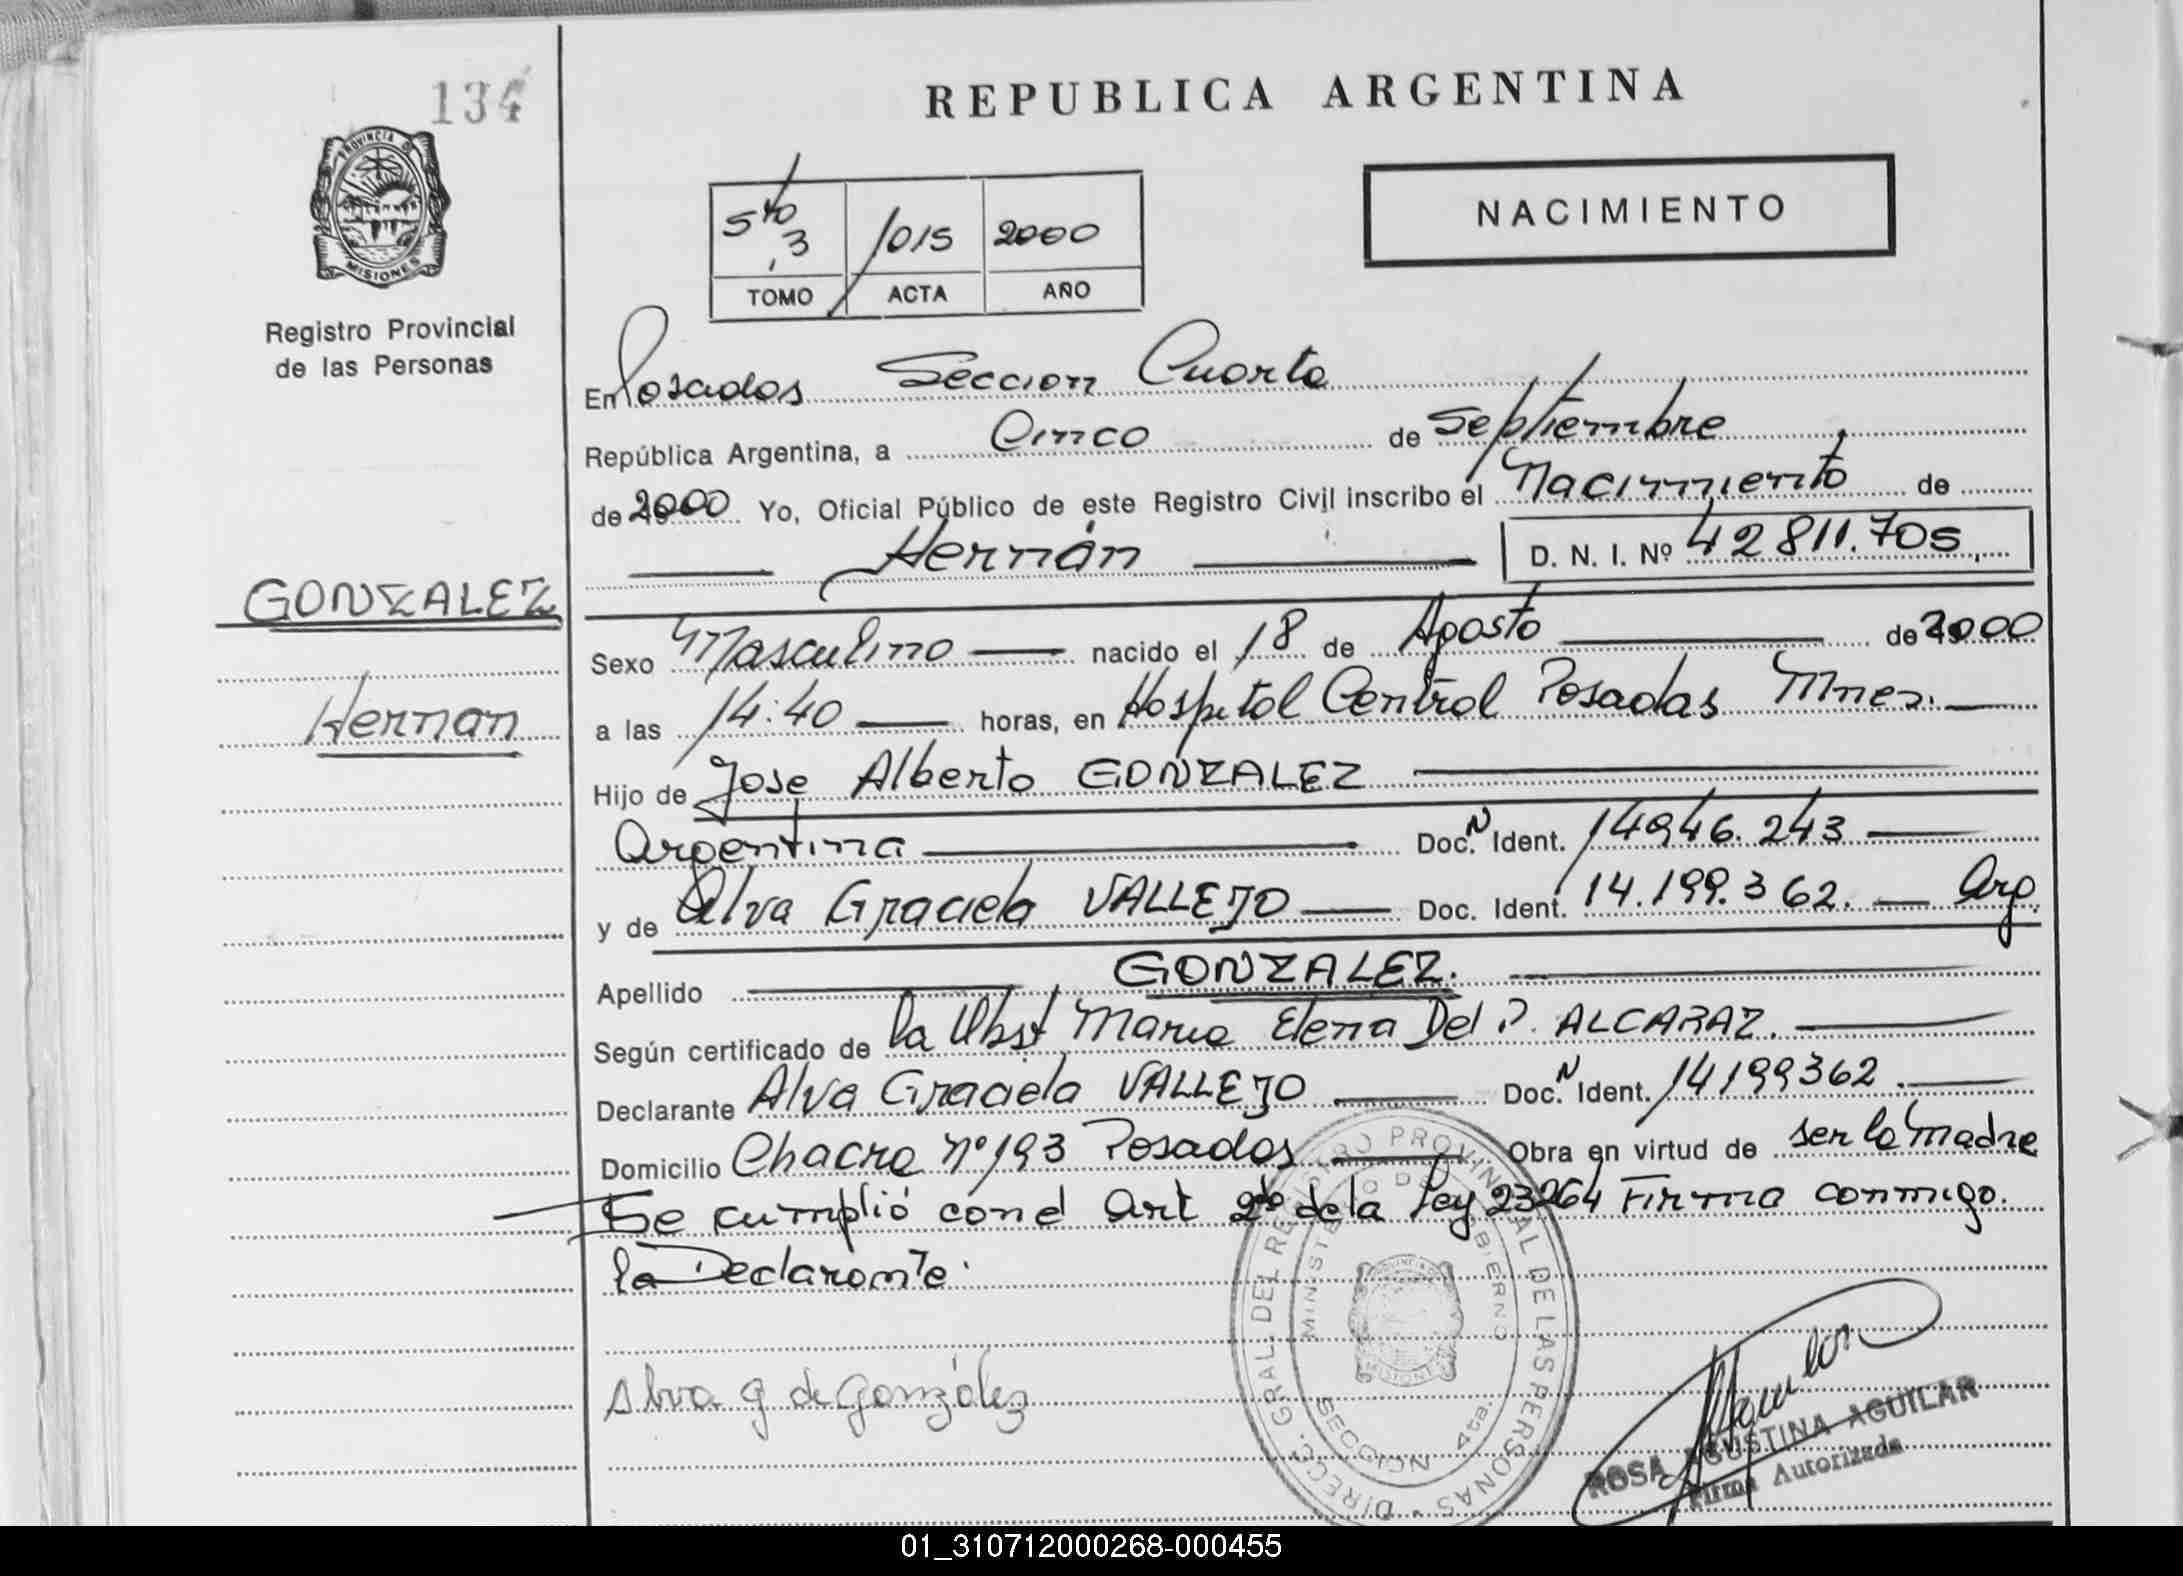 134
REPUBLICA ARGENTINA
PROVINCIA DE
MISIONES
Registro Provincial
de las Personas
5to 3 1015 2000
TOMO ACTA AÑO
NACIMIENTO
En Posadas Seccion Cuarta
República Argentina, a Cinco de Septiembre
de 2000 Yo, Oficial Público de este Registro Civil inscribo el Nacimiento de
Hernán D. N. I. Nº 42811.705
GONZALEZ
Sexo Masculino nacido el 18 de Agosto de 2000
Hernan
a las 14:40 horas, en Hospital Central Posadas Mnes.
Hijo de Jose Alberto GONZALEZ
Argentina Doc. N Ident. 14946.243
y de Alva Graciela VALLEJO Doc. Ident. 14.199.362. Arg.
Apellido GONZALEZ.
Según certificado de la Obst Maria Elena Del P. ALCARAZ.
Declarante Alva Graciela VALLEJO Doc. N Ident. 14199362.
Domicilio Chacra Nº 193 Posadas Obra en virtud de ser la madre
Se cumplió con el Art 2do de la Ley 23264 Firma conmigo.
la Declarante.
DIRECC. GRAL. DEL REGISTRO PROVINCIAL DE LAS PERSONAS
MINISTERIO DE GOBIERNO
SECCION 4ta.
Alva g de González
Aguilar
ROSA AGUSTINA AGUILAR
Firma Autorizada
01_310712000268-000455